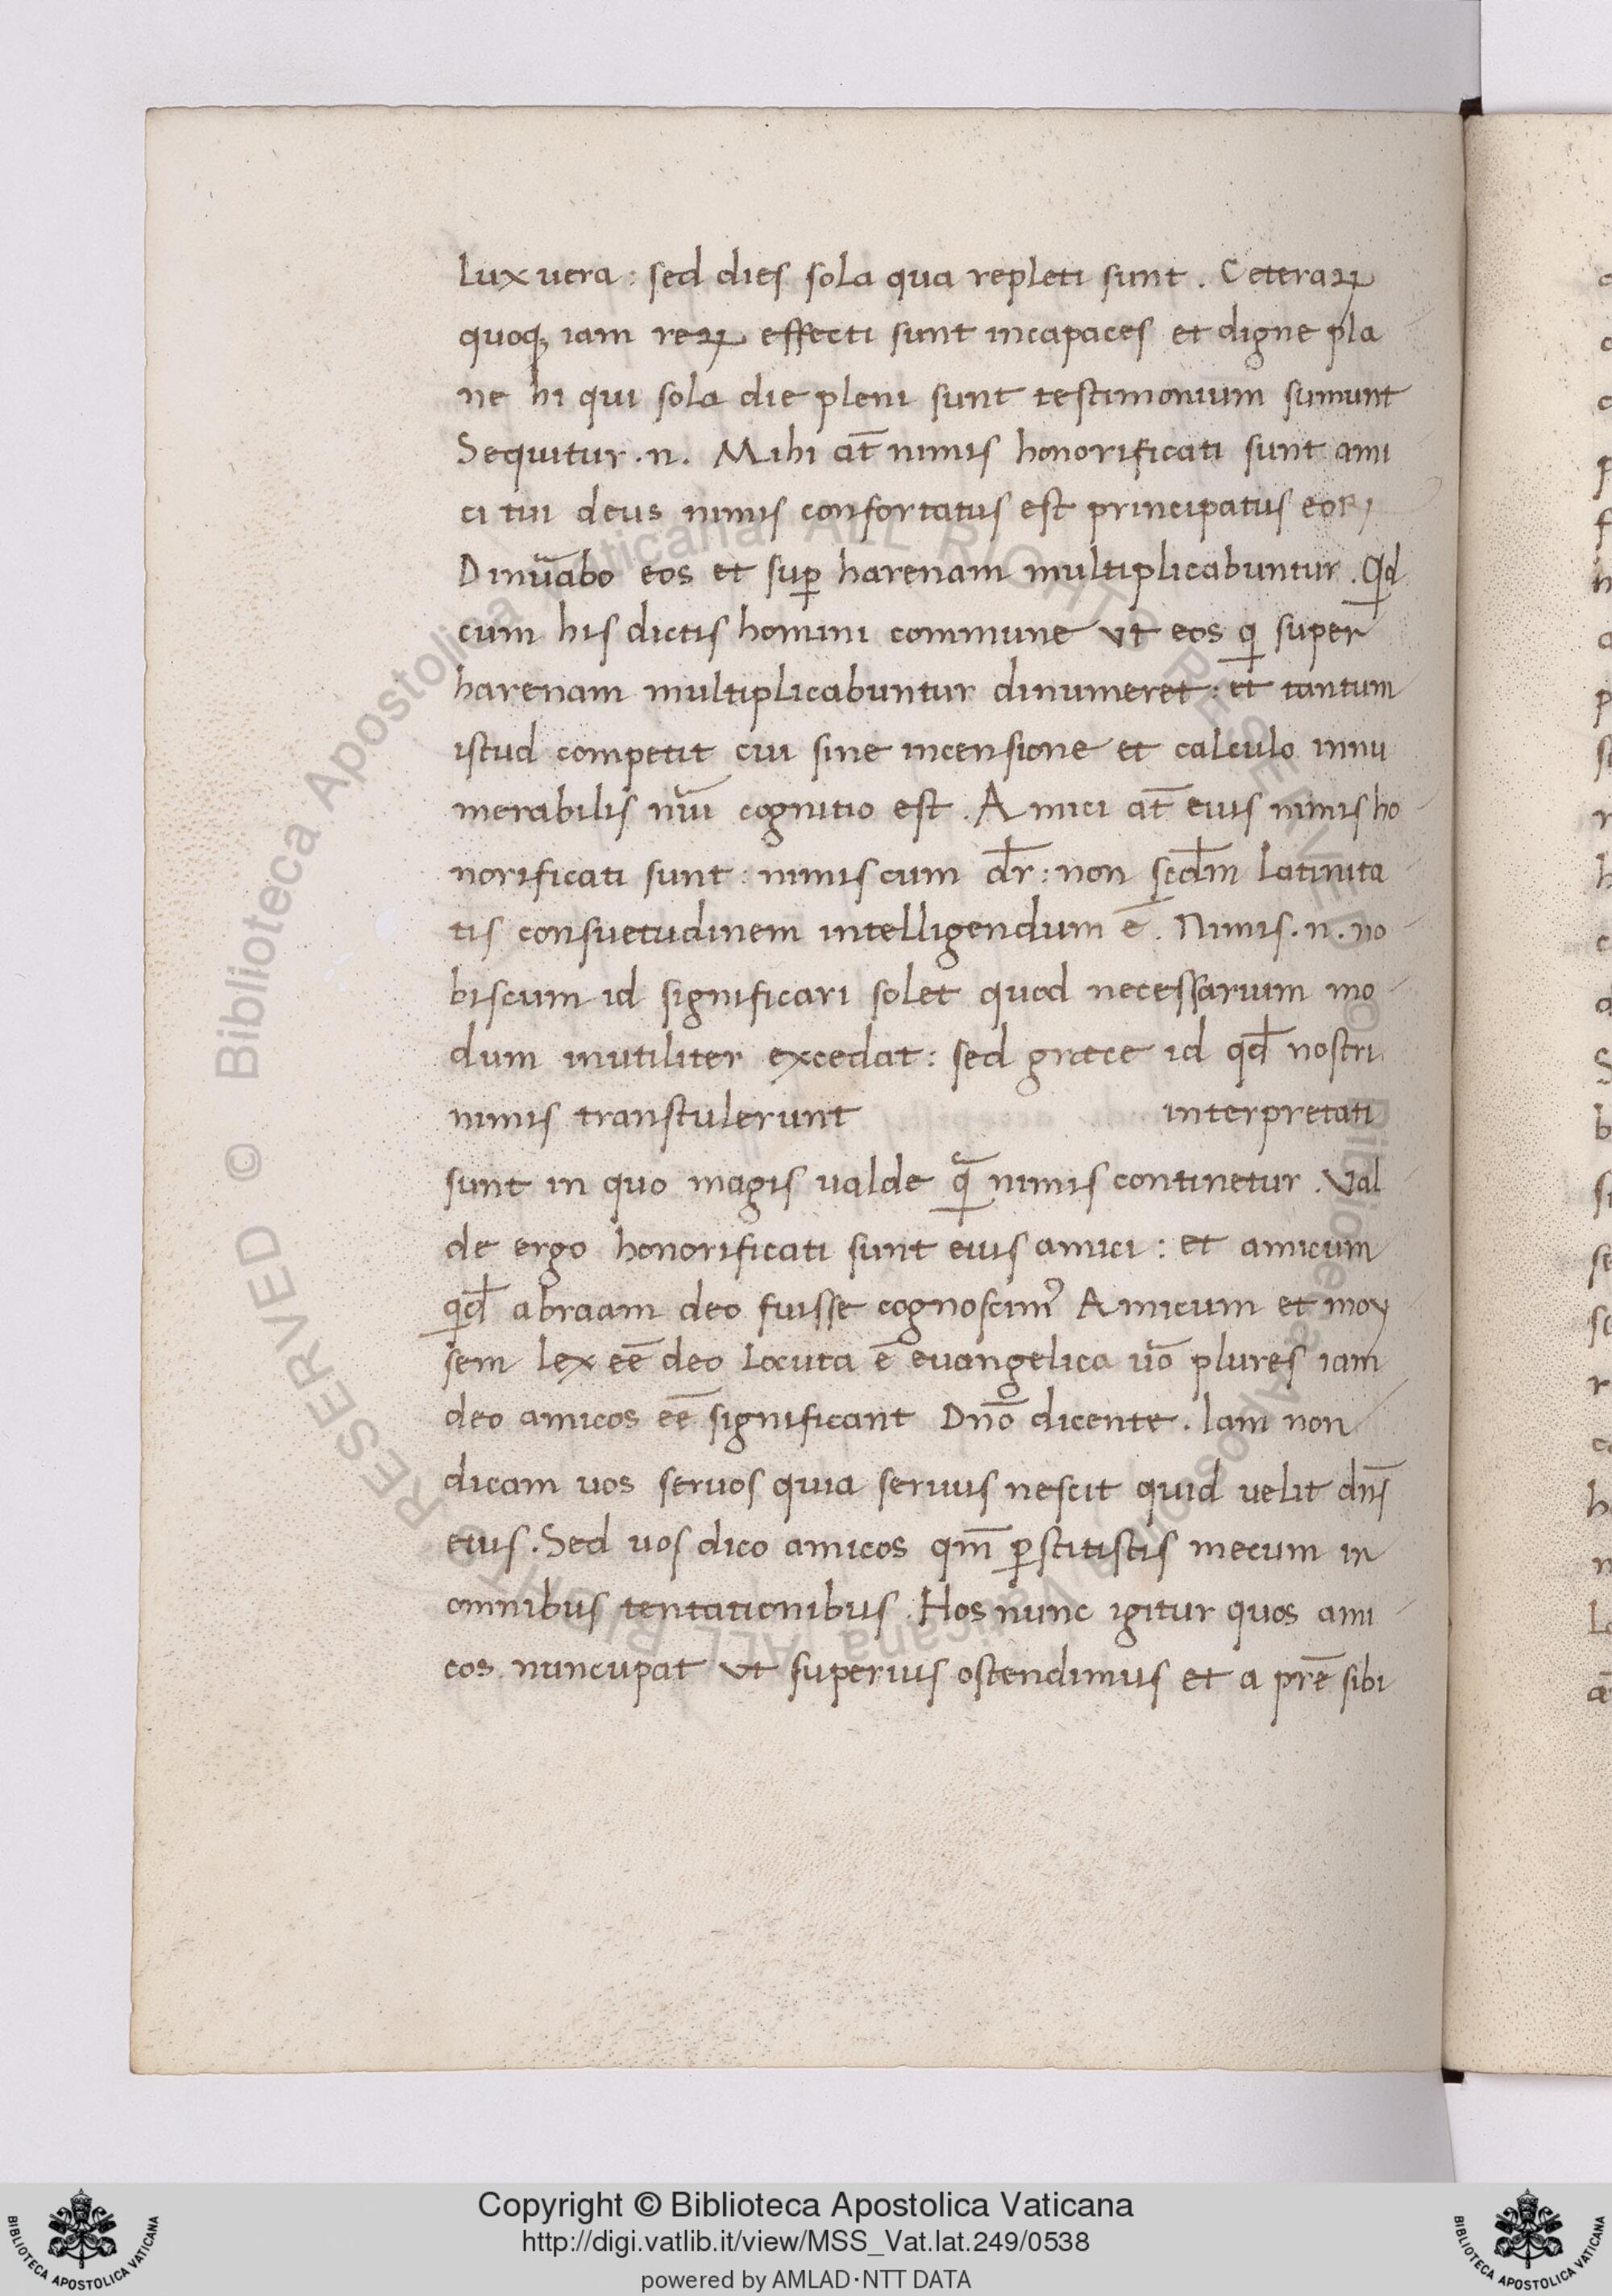 lux uera : sed dies sola qua repleti sunt . Ceteraꝝ
quoqꝫ iam reꝝ effecti sunt incapaces et digne pla
ne hi qui sola die pleni sunt testimonium sumunt
Sequitur .n. Mihi at̄ nimis honorificati sunt ami
ci tui deus nimis confortatus est principatus eoꝝ
Dinūabo eos et suꝑ harenam multiplicabuntur . Qd
cum his dictis homini commune vt eos q super
harenam multiplicabuntur dinumeret : et tantum
istud competit cui sine incensione et calculo innu
merabilis nūi cognitio est . Amici at̄ eius nimis ho
norificati sunt : nimis cum dr̄ : non scdm̄ latinita
tis consuetudinem intelligendum ē . Nimis .n. no
biscum id significari solet quod necessarium mo
dum inutiliter excedat : sed græce id qd̄ nostri
nimis transtulerunt interpretati
sunt in quo magis ualde q̄ nimis continetur . Val
de ergo honorificati sunt eius amici : et amicum
qd̄ abraam deo fuisse cognoscimꝰ Amicum et moy
sem lex eē deo locuta ē euangelica uō plures iam
deo amicos eē significant Dnō dicente . Iam non
dicam uos seruos quia seruus nescit quid uelit dn̄s
eius . Sed uos dico amicos qm̄ ꝑstitistis mecum in
omnibus tentationibus . Hos nunc igitur quos ami
cos nuncupat vt superius ostendimus et a prē sibi
Copyright © Biblioteca Apostolica Vaticana
http://digi.vatlib.it/view/MSS_Vat.lat.249/0538
powered by AMLAD·NTT DATA
BIBLIOTECA APOSTOLICA VATICANA
BIBLIOTECA APOSTOLICA VATICANA
© Biblioteca Apostolica Vaticana ALL RIGHTS RESERVED
© Biblioteca Apostolica Vaticana ALL RIGHTS RESERVED